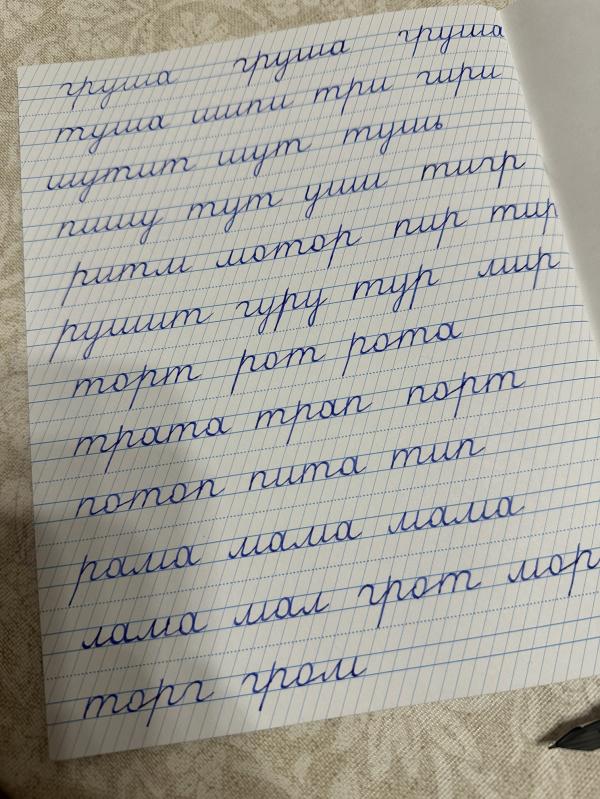 груша груша груша
туша шипи три гири
шутит шут тушь
пишу тут уши тигр
ритм мотор пир тир
рушит гуру тур мир
торт рот рота
трата трап порт
потоп пита тип
рама мама мама
лама мал грот мор
торг гром